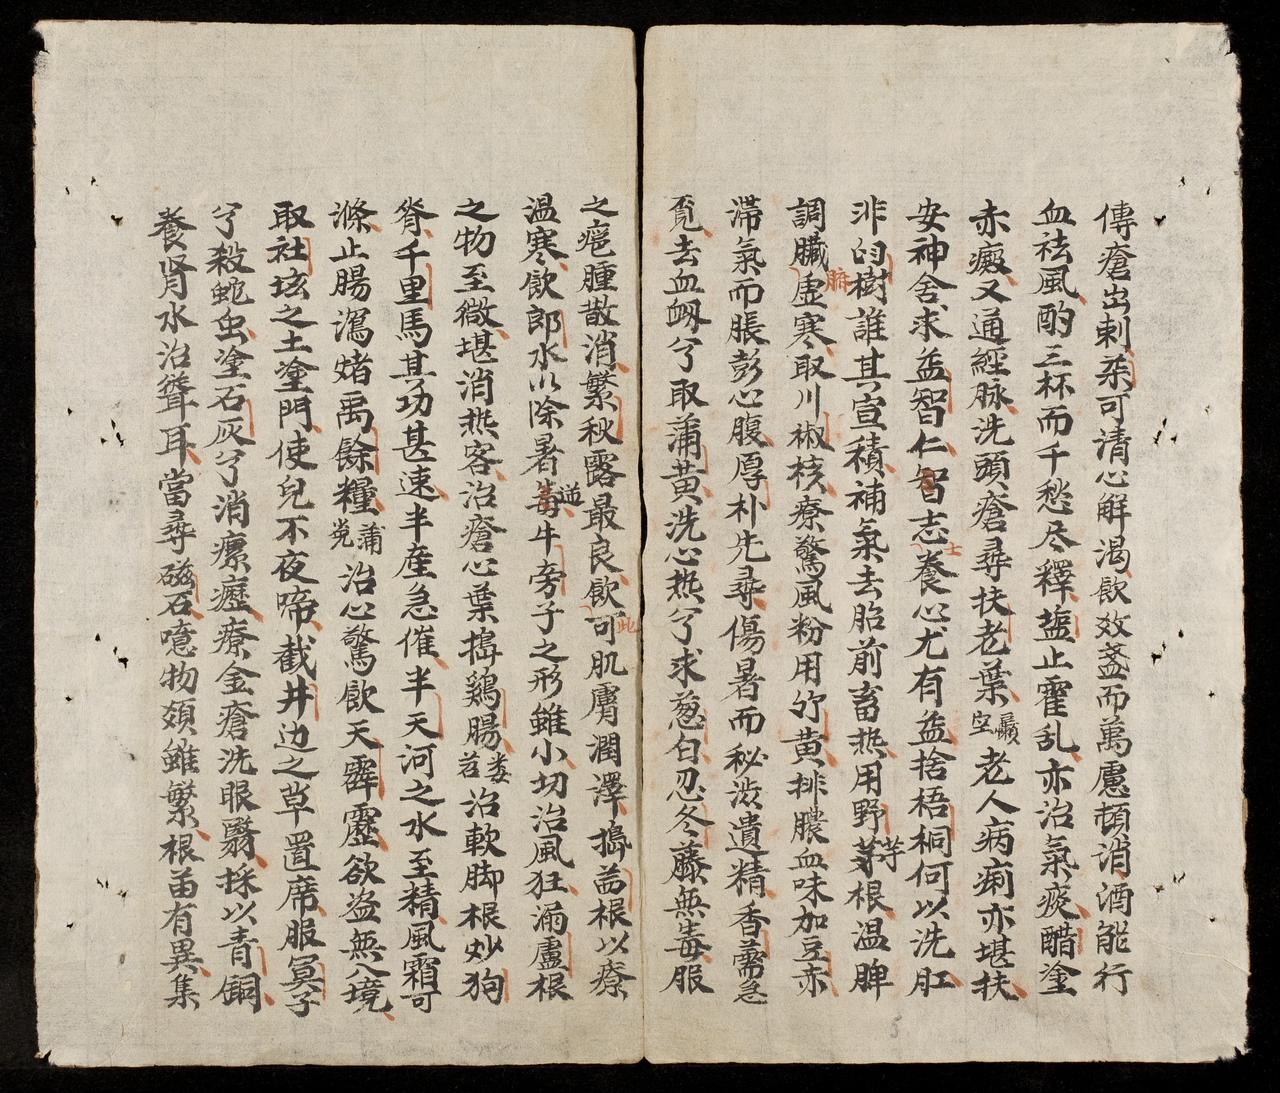 傳瘡出刺茶可清心解渴飲效盞而萬慮頓消酒能行
血祛風酌三杯而千愁尽釋塩止霍乱亦治氣痰醋塗
赤癜又通經脉洗頭瘡尋扶老葉老人病痢亦堪扶
安神舍求益智仁智志養心尤有益捨梧桐何以洗肛
非的樹誰其宣積補氣去胎前畜热用野茅根温脾
調臟虛寒取川椒核療驚風粉用竹黄排膿血味加豆亦
滯氣而脹彭心腹厚朴先尋傷暑而秘澁遺精香薷急
覓去血衂兮取蒲黄洗心热兮求葱白忍冬藤無毒服
之疤腫散消繁秋露最良飲可肌膚潤澤擣茼根以療
温寒飲郎水以除暑毒牛旁子之形雖小切治風狂漏盧根
之物至微堪消热客治瘡心葉擣鷄腸治軟脚根炒狗
脊千里馬其功甚速半產急催半天河之水至精風霜可
滌止腸瀉煑禹餘糧治心驚飲天霹靂欲盜無入境
取社垓之土塗門使兒不夜啼截井边之草置席服冥子
兮殺蛇虫塗石灰兮消瘰癧療金瘡洗眼翳採以青銅
養肾水治聾耳當尋磁石噫物類雖繁根苗有異集